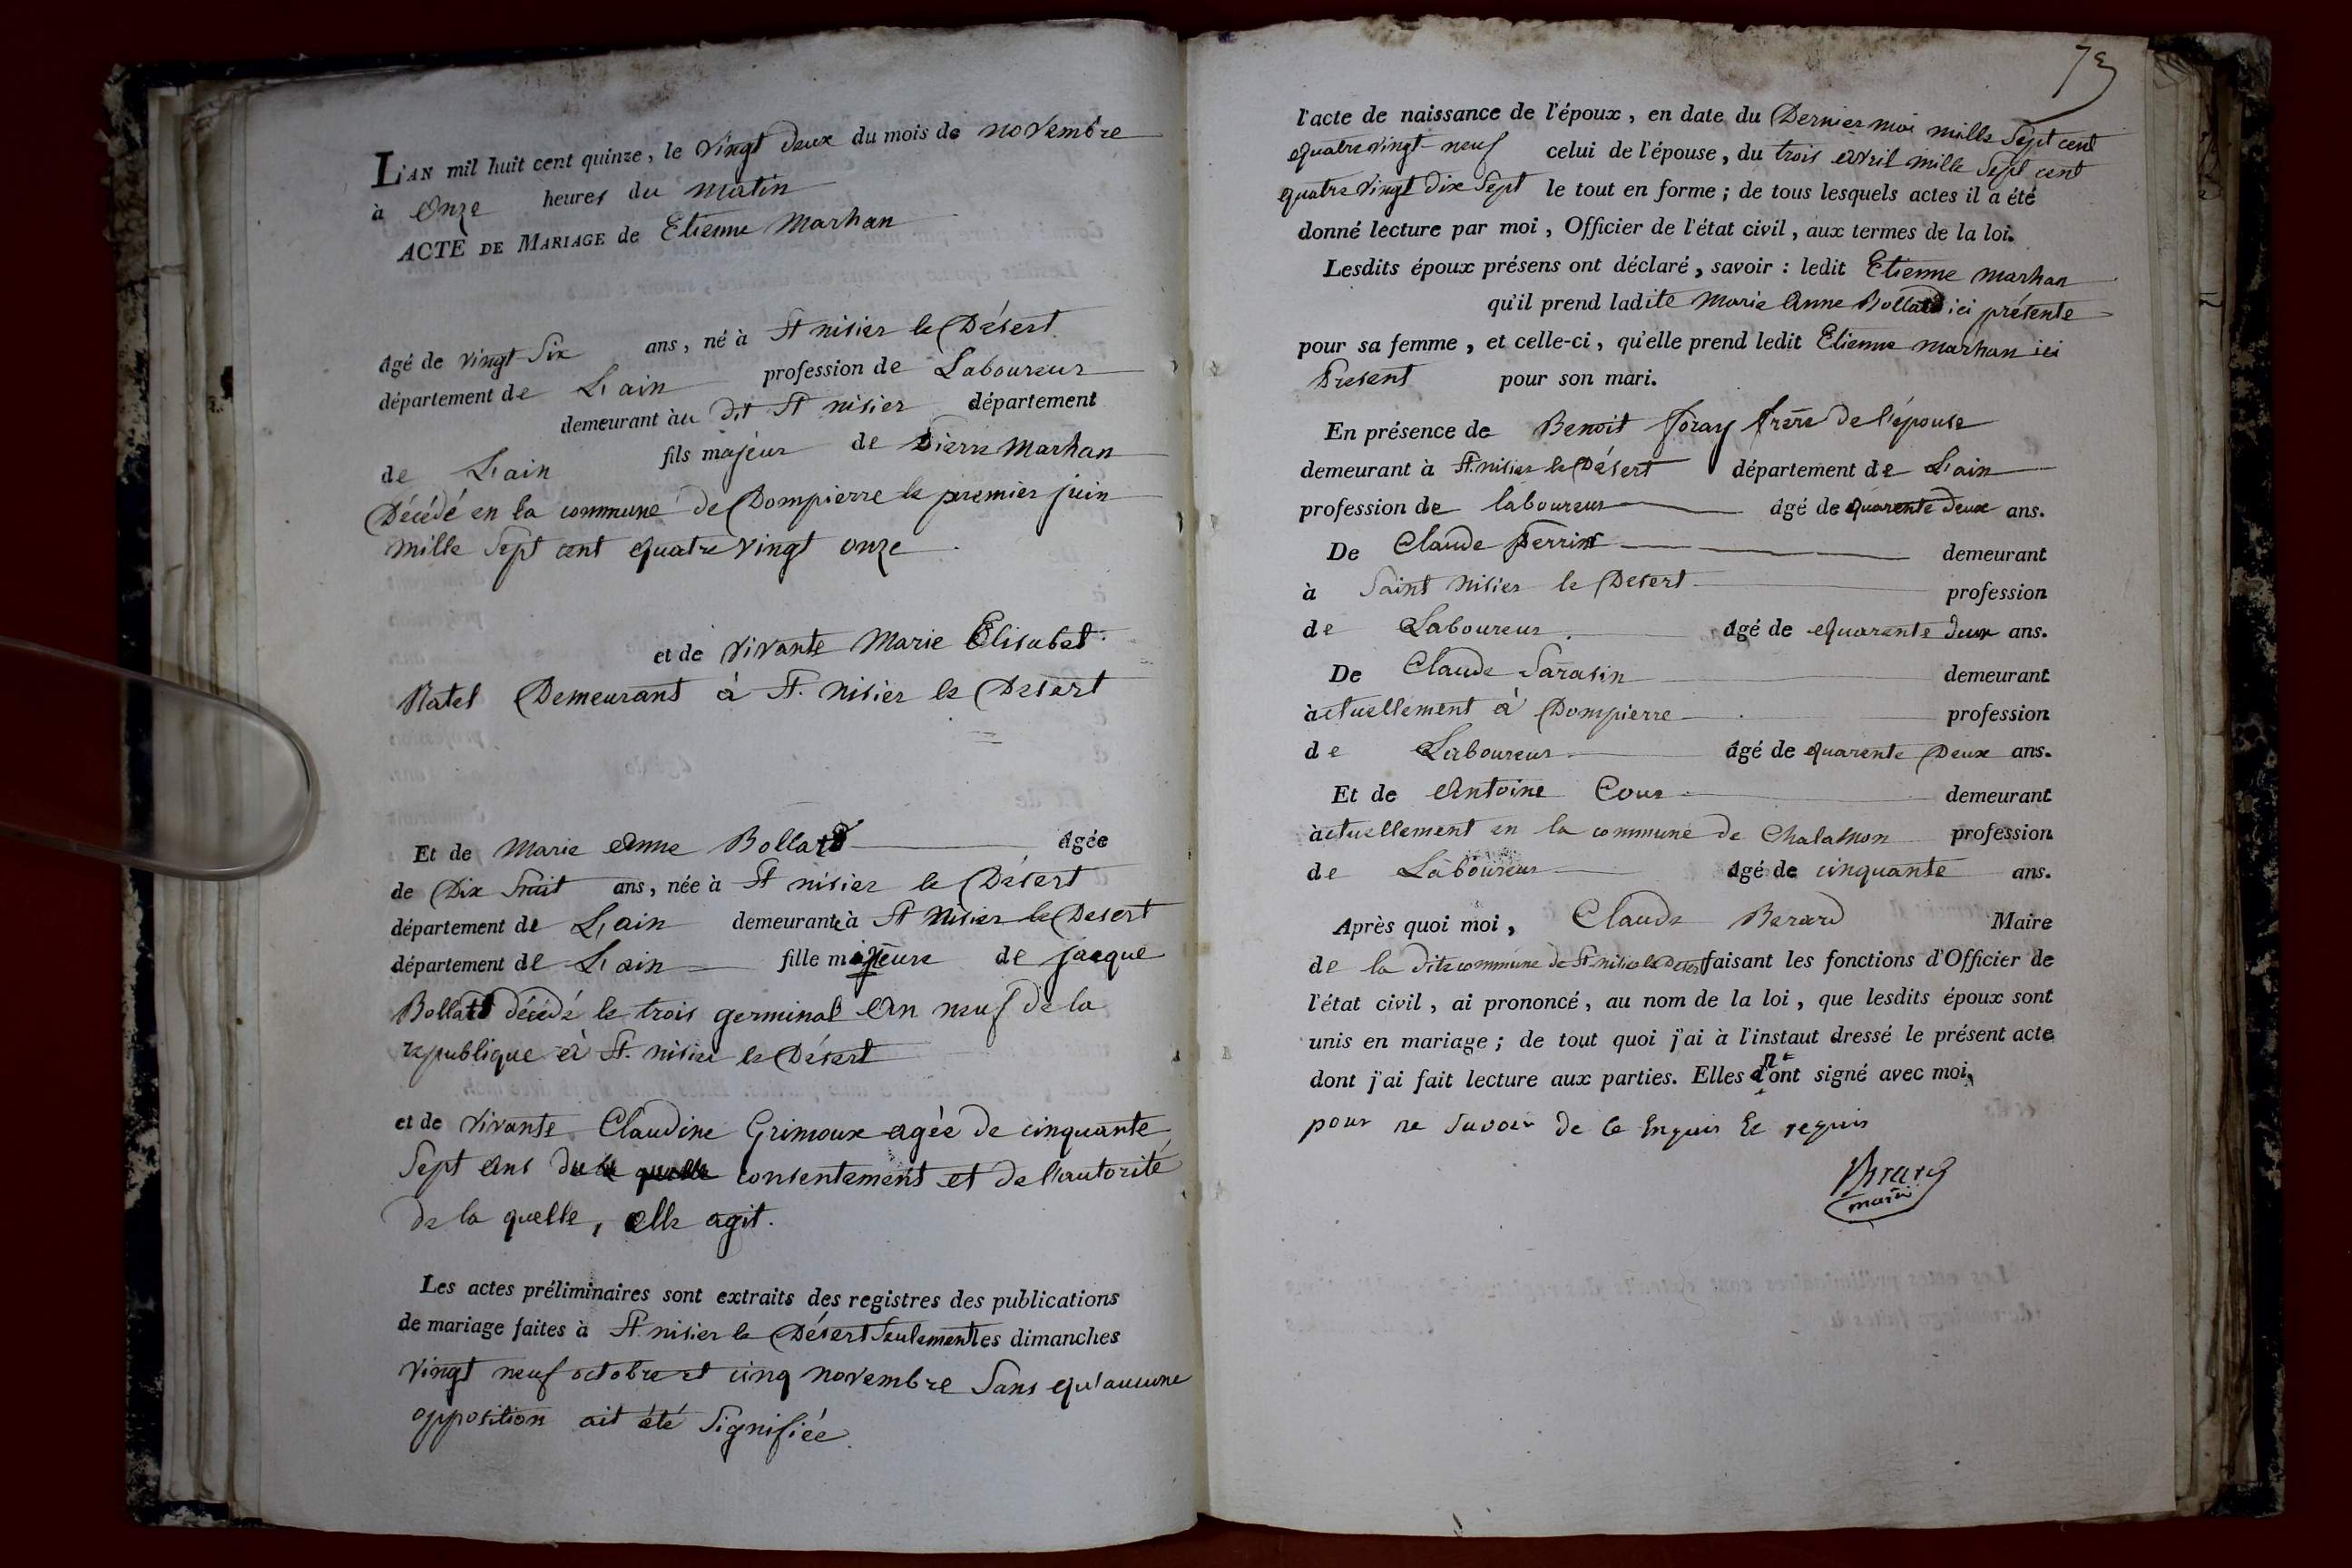 L'AN mil huit cent quinze, le vingt deux du mois de novembre
à Onze heures du matin
ACTE DE MARIAGE de Etienne Marhan
âgé de vingt Six ans, né à St nisier le Désert
département de L'ain profession de Laboureur
demeurant àu dit St nisier département
de L'ain fils majeur de Pierre Marhan
Décédé en la commune de Dompierre le premier juin
mille Sept cent quatre vingt onze
et de vivante Marie Elisabet
Natel Demeurant à St. nisier le Desert
Et de Marie Anne Bollard âgée
de Dix huit ans, née à St nisier le Désert
département de L'ain demeurante à St Nisier le Desert
département de L'ain fille mineure de jacque
Bollard décédé le trois germinal An neuf de la
republique à St. nisier le Désert
et de vivante Claudine Grimoux agée de cinquante
Sept Ans du consentement et de l'autorité
de la quelle, elle agit.
Les actes préliminaires sont extraits des registres des publications
de mariage faites à St. nisier le Désert Seulement les dimanches
vingt neuf octobre et cinq novembre Sans qu'aucune
opposition ait été Signifiée
73
l'acte de naissance de l'époux, en date du Dernier mai mille Sept cent
quatre vingt neuf celui de l'épouse, du trois avril mille Sept cent
quatre vingt dix Sept le tout en forme ; de tous lesquels actes il a été
donné lecture par moi, Officier de l'état civil, aux termes de la loi.
Lesdits époux présens ont déclaré, savoir : ledit Etienne marhan
qu'il prend ladite Marie Anne Bollard ici présente
pour sa femme, et celle-ci, qu'elle prend ledit Etienne marhan ici
Present pour son mari.
En présence de Benoit foray frère de l'épouse
demeurant à St. nisier le Désert département de L'ain
profession de laboureur âgé de quarente deux ans.
De Claude Perrin demeurant
à Saint Nisier le Desert profession
de Laboureur âgé de quarante deux ans.
De Claude Sarasin demeurant
àctuellement à Dompierre profession
de Laboureur âgé de quarente Deux ans.
Et de Antoine Cour demeurant
àctuellement en la commune de Chalamon profession
de Laboureur âgé de cinquante ans.
Après quoi moi, Claude Berard Maire
de la dite commune de St. nisier le Desert faisant les fonctions d'Officier de
l'état civil, ai prononcé, au nom de la loi, que lesdits époux sont
unis en mariage ; de tout quoi j'ai à l'instaut dressé le présent acte
dont j'ai fait lecture aux parties. Elles n'ont signé avec moi,
pour ne Savoir de ce Enquis Et requis
Berard
maire